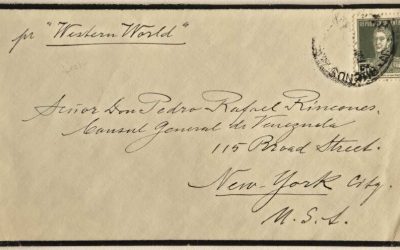 pr "Western World"
Señor Don Pedro Rafael Rincones,
Consul General de Venezuela
115 Broad Street.
New-York City.
U.S.A.